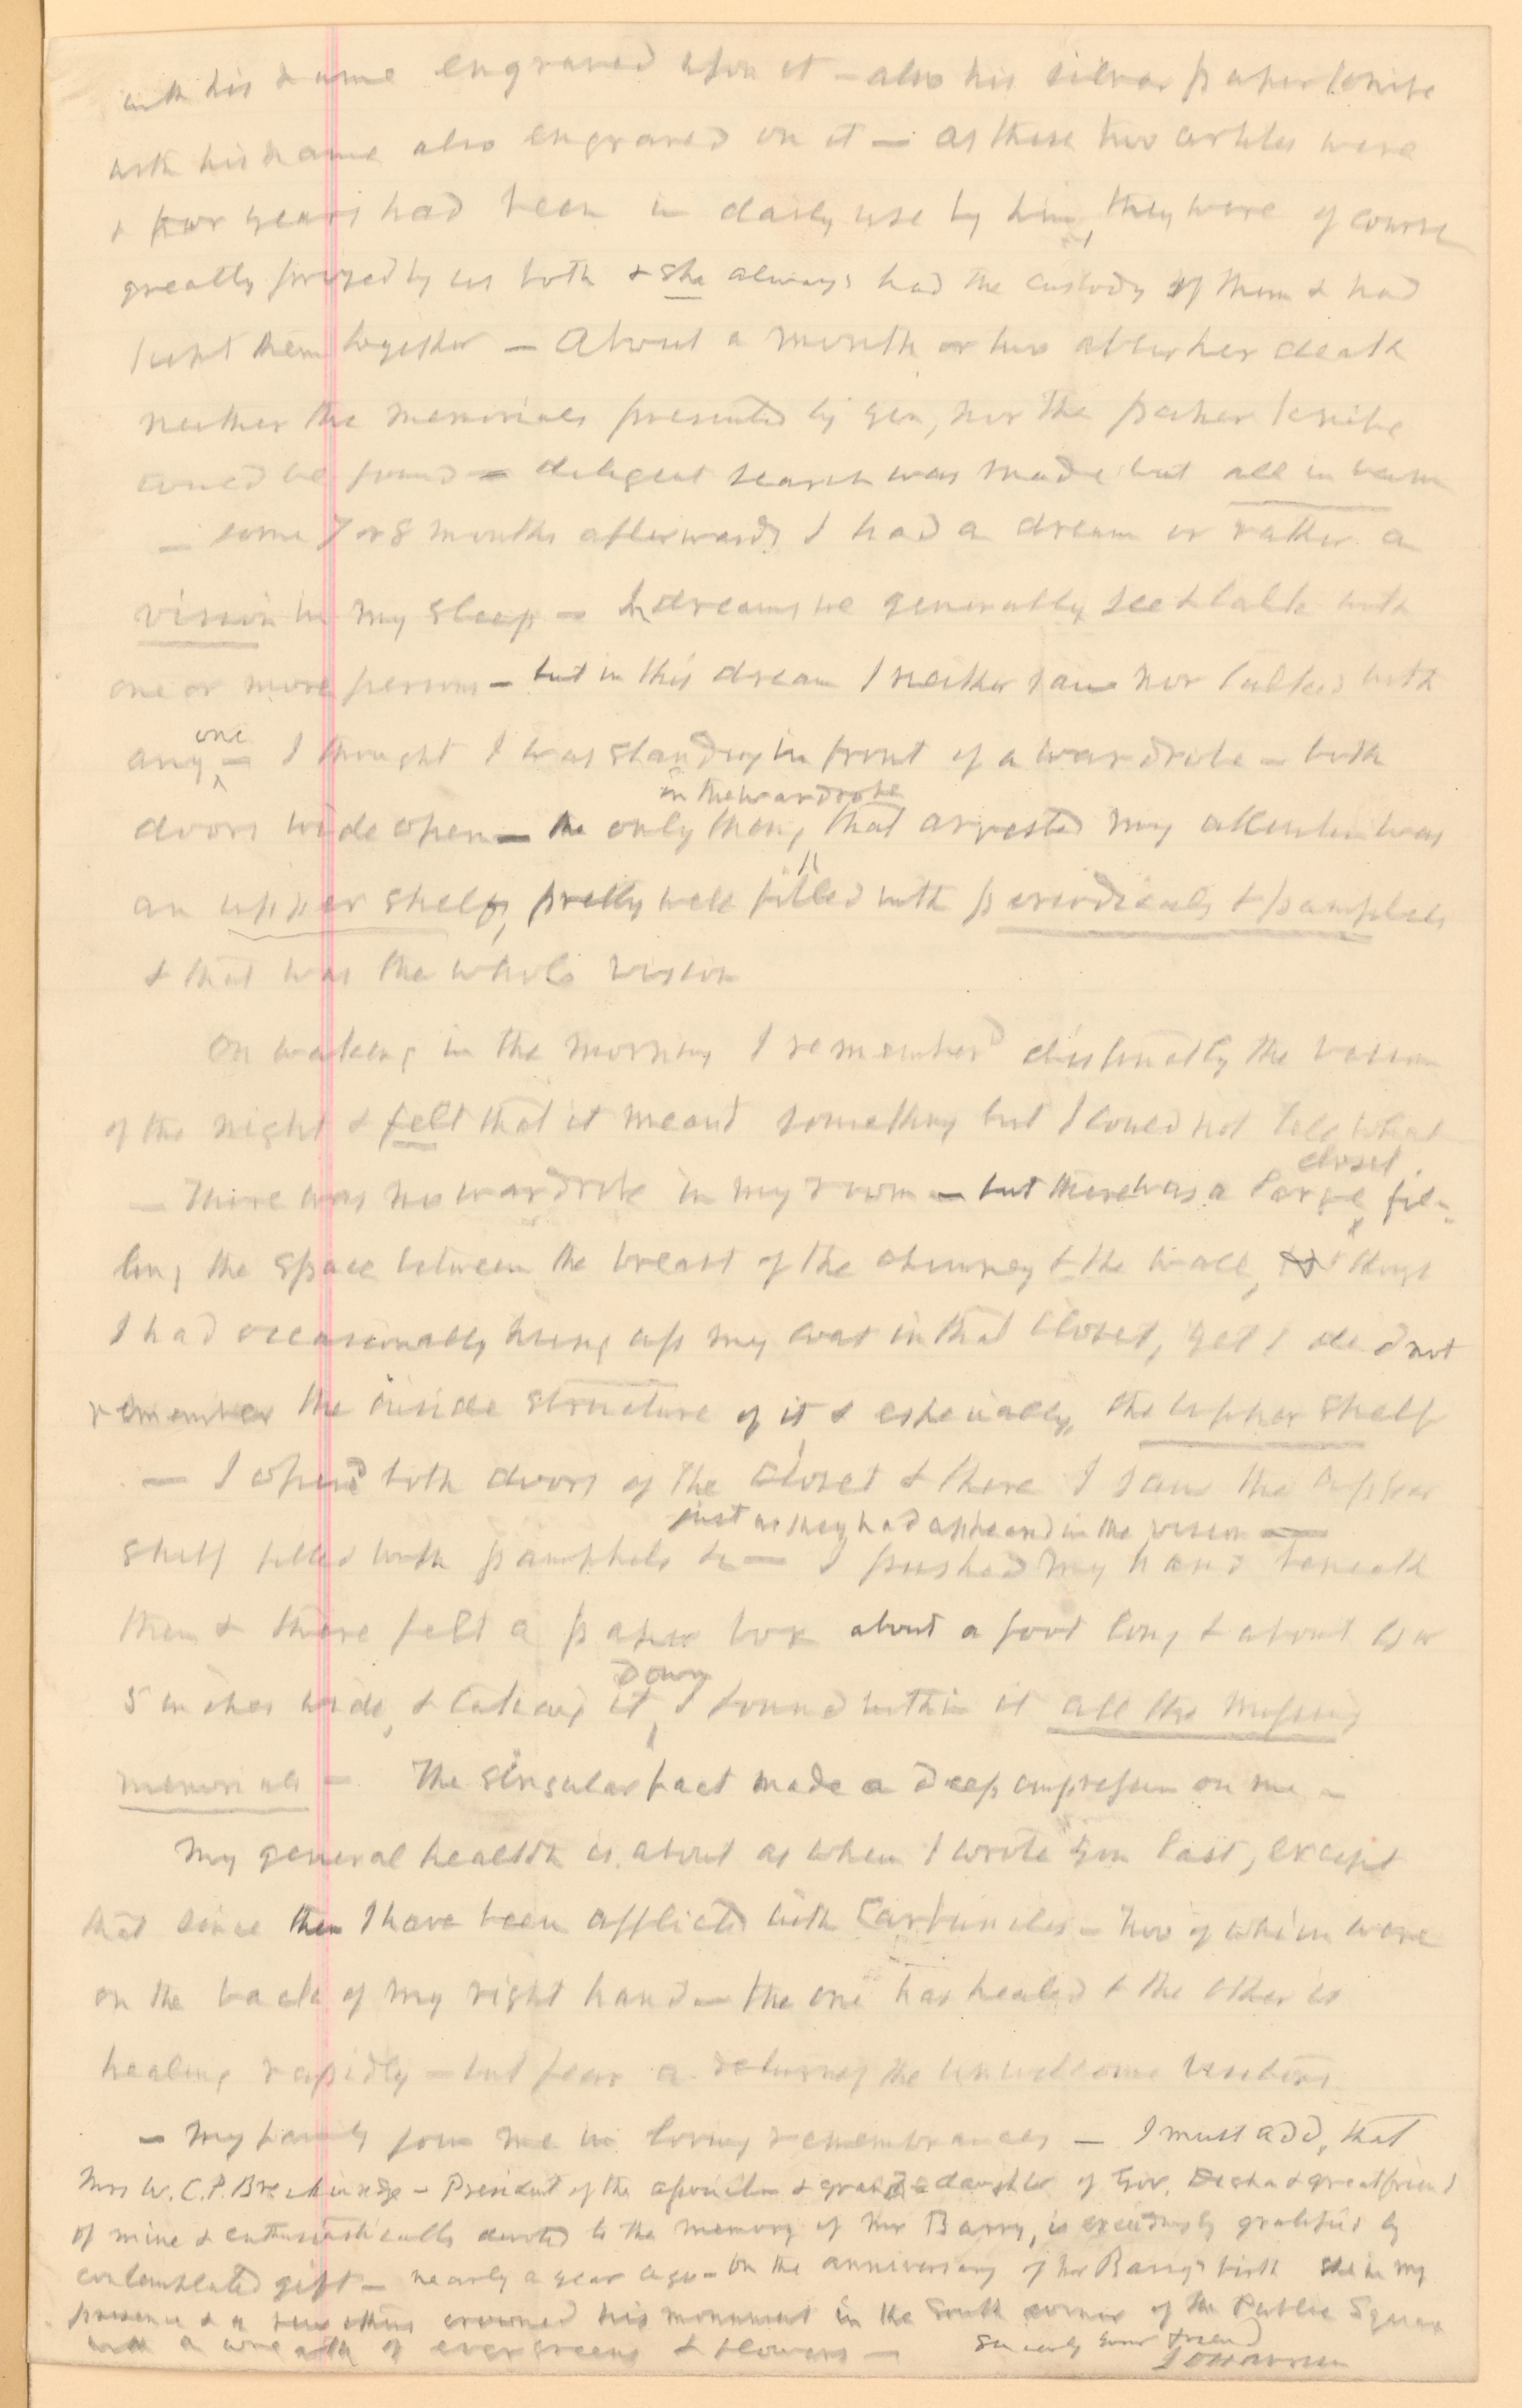 with his name engraved upon it – also his silver paper knife
with his name also engraved on it – as these two articles were
& for years had been in daily use by him, they were of course
greatly prized by us both & she always had the custody of them & had
kept them together – About a month or two after her death
neither the memorials presented by you, nor the paper knife
could be found – diligent search was made but all in vain
– some 7 or 8 months afterwards I had a dream or rather a
vision in my sleep – In dreams we generally see & talk with
one or more persons – but in this dream I neither saw nor talked with
any one – I thought I was standing in front of a wardrobe – both
doors wide open – the only thing in the wardrobe that arrested my attention was
an upper shelf, pretty well filled with periodicals & pamphlets
& that was the whole vision
On waking in the morning I remember'd distinctly the vision
of the night & felt that it meant something but I could not tell what
– There was no wardrobe in my room – but there was a large closet fil-
ling the space between the breast of the chimney & the wall, & tho
I had occasionally hung up my coat in that closet, yet I did not
remember the inside structure of it & especially, the upper shelf
– I open'd both doors of the closet & there I saw the upper
shelf filled with pamphlets &c – just as they had appeared in the vision – I pushed my hand beneath
them & there felt a paper box about a foot long & about 4 or
5 inches wide, & taking it down, I found within it all the missing
memorials – The singular fact made a deep impression on me –
My general health is about as when I wrote you last, except
that since then I have been afflicted with Carbuncles – two of which were
on the back of my right hand – the one has healed & the other is
healing rapidly – but fear a return of the unwelcome visitors
– My family join me in loving remembrances – I must add, that
Mrs W.C.P. Breckinridge – President of the association & grand daughter of Gov. Desha & great friend
of mine & enthusiastically devoted to the memory of Mr Barry, is exceedingly gratified by
contemplated gift – nearly a year ago – on the anniversary of Mr Barry's birth she in my
presence & a few others crowned his monument in the South corner of the Public Square
with a wreath of evergreens & flowers – Sincerely your friend